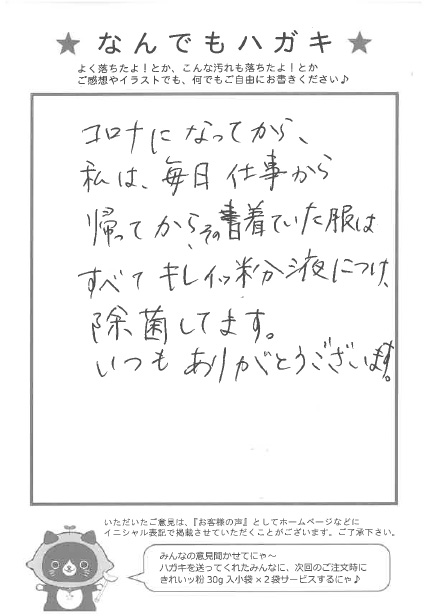 ★ なんでもハガキ ★
よく落ちたよ！とか、こんな汚れも落ちたよ！とか
ご感想やイラストでも、何でもご自由にお書きください♪
コロナになってから、
私は、毎日仕事から
帰ってから、その着ていた服は
すべてキレイッ粉分液につけ、
除菌してます。
いつもありがとうございます。
いただいたご意見は、『お客様の声』としてホームページなどに
イニシャル表記で掲載させていただくことがございます。ご了承下さい。
みんなの意見聞かせてにゃ～
ハガキを送ってくれたみんなに、次回のご注文時に
きれいッ粉 30g 入小袋 × 2 袋サービスするにゃ♪